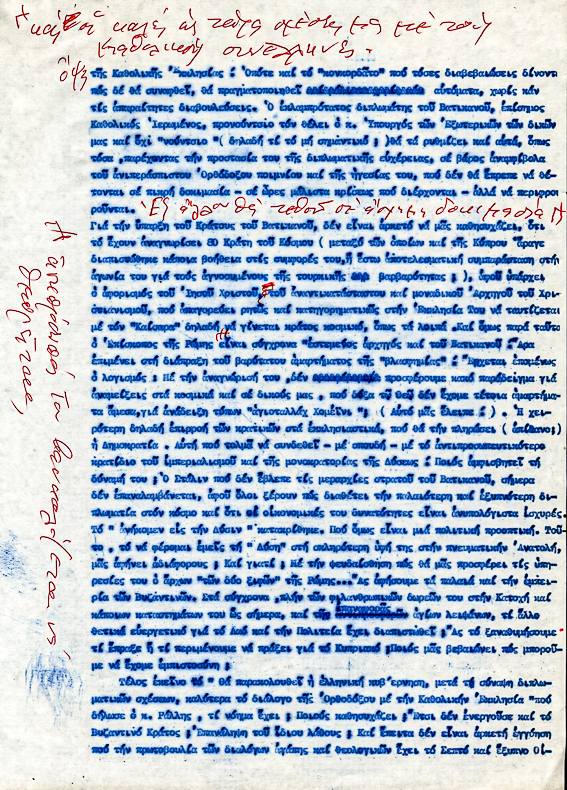 τῆς Καθολικῆς Ἐκκλησίας ; Ὁπότε καί τό "κονκορδᾶτο" πού τόσες διαβεβαιώσεις δίνονται
πῶς δέ θά συναφθεῖ, θά πραγματοποιηθεῖ αὐτόματα, χωρίς κἄν
τίς ἀπαραίτητες διαβουλεύσεις. Ὁ ἐκλαμπρότατος διπλωμάτης τοῦ Βατικανοῦ, ἐπίσημος
Καθολικός Ἱερωμένος, προνούντσιο τόν θέλει ὁ κ. Ὑπουργός τῶν Ἐξωτερικῶν τῶν δικῶν
μας καί ὄχι "νούντσιο" ( δηλαδή τί τό μή σημαντικό ; )θά τά ρυθμίζει καί αὐτά, ὅπως
τόσα ,παρέχοντας τήν προστασία του τῆς διπλωματικῆς εὐχέρειας, σέ βάρος ἀναμφίβολα
τοῦ ἀνυπεράσπιστου Ὀρθόδοξου ποιμνίου καί τῆς ἡγεσίας του, πού δέν θά ἔπρεπε νά θέ-
τονται σέ πικρή δοκιμασία - σέ ὧρες μάλιστα κρίσεως πού διέρχονται - ἀλλά νά περιφρου
ροῦνται.
Γιά τήν ὕπαρξη τοῦ Κράτους τοῦ Βατικανοῦ, δέν εἶναι ἀρκετό νά μᾶς καθησυχάζει, ὅτι
τό ἔχουν ἀναγνωρίσει 80 Κράτη τοῦ Κόσμου ( μεταξύ τῶν ὁποίων καί τῆς Κύπρου ἆραγε
διαπιστώθηκε κάποια βοήθεια στίς συμφορές του,ἤ ἔστω ἀποτελεσματική συμπαράσταση στήν
ἀγωνία του γιά τούς ἀγνοουμένους τῆς τουρκικῆς βαρβαρότητας ; ), ἀφοῦ ὑπάρχει
ὁ ἀφορισμός τοῦ Ἰησοῦ Χριστοῦ, τοῦ ἀναντικατάστατου καί μοναδικοῦ Ἀρχηγοῦ τοῦ Χρι-
στιανισμοῦ, πού ἀπαγορεύει ρητῶς καί κατηγορηματικῶς στήν Ἐκκλησία Του νά ταυτίζεται
μέ τόν "Καίσαρα" δηλαδή νά γίνεται κράτος κοσμικό, ὅπως τά λοιπά .Καί ὅμως παρά ταῦτα
ὁ Ἐπίσκοπος τῆς Ρώμης εἶναι σύγχρονα "ἐστεμένος ἀρχηγός καί τοῦ Βατικανοῦ ; Ἄρα
ἐπιμένει στή διάπραξη τοῦ βαρύτατου ἁμαρτήματος τῆς "βλασφημίας" ; Ἔρχεται ἑπομένως
ὁ λογισμός ; Μέ τήν ἀναγνώρισή του ,δέν προσφέρουμε κακό παράδειγμα γιά
ἀναμείξεις στά κοσμικά καί σέ δικούς μας , πού δόξα τῶ Θεῶ δέν ἔχομε τέτοια ἁμαρτήμα-
τα ἄμεσα,γιά ἀνάδειξη τύπων "ἀγιοταλλάχ Χομεϊνί "; ( Αὐτό μᾶς ἔλειπε ! ) . Ἡ χει-
ρότερη δηλαδή ἐπιρροή τῶν κρατικῶν στά ἐκκλησιαστικά, πού θά τήν πληρώσει ( ἐπίθανο;)
ἡ Δημοκρατία . Αὐτή πού τολμᾶ νά συνδεθεῖ - μέ σπουδή - μέ τό ἀντιπροσωπευτικώτερο
κρατίδιο τοῦ ἱμπεριαλισμοῦ καί τῆς μονοκρατορίας τῆς Δύσεως ; Ποιός ἀμφισβητεῖ τή
δύναμή του ; Ὁ Στάλιν πού δέν ἔβλεπε τίς μεραρχίες στρατοῦ τοῦ Βατικανοῦ, σήμερα
δέν ἐπαναλαμβάνεται, ἀφοῦ ὅλοι ξέρουν πώς διαθέτει τήν παλαιότερη καί ἐξυπνότερη δι-
πλωματία στόν κόσμο καί ὅτι οἱ οἰκονομικές του δυνατότητες εἶναι ἀνυπολόγιστα ἰσχυρές.
Τό " ἀνήκομεν εἰς τήν Δύσιν" κατακρίθηκε. Πού ὅμως εἶναι μιά πολιτική προοπτική. Τοῦ-
το , τό νά φέρομαι ἐμεῖς τή "Δύση" στή σκληρότερη ὑφή της στήν πνευματική Ἀνατολή,
μᾶς ἀφήνει ἀδιάφορους ; Καί γιατί ; Μέ τήν ψευδαίσθηση πώς θά μᾶς προσφέρει τίς ὑπη-
ρεσίες του ὁ ἄρχων "τῶν δύο ξιφῶν" τῆς Ρώμης... Ἄς ἀφήσουμε τά παλαιά καί τήν ἐμπει-
ρία τῶν Βυζαντινῶν. Στά σύγχρονα ,πλήν τῶν φιλανθρωπικῶν δωρεῶν του στήν Κατοχή καί
κάποιων καταστημάτων του ὥς σήμερα, καί τῆς ἐπαναφορᾶς ἁγίων λειψάνων, τί ἄλλο
θετικά εὐεργετικό γιά τό Λαό καί τήν Πολιτεία ἔχει διαπιστωθεῖ ; Ἄς τό ξαναθυμήσουμε
τί ἔπραξε ἤ τί περιμένουμε νά πράξει γιά τό Κυπριακό ;Ποιός μᾶς βεβαιώνει πώς μποροῦ-
με νά ἔχομε ἐμπιστοσύνη ;
Τέλος ἐπεῖνο τό " θά παρακολουθεῖ ἡ ἑλληνική κυβέρνηση, μετά τή σύναψη διπλω-
ματικῶν σχέσεων, καλύτερα τό διάλογο τῆς Ὀρθοδόξου μέ τήν Καθολική Ἐκκλησία "πού
δήλωσε ὁ κ. Ράλλης , τί νόημα ἔχει ; Ποιούς καθησυχάζει ; Ἔτσι δέν ἐνεργοῦσε καί τό
Βυζαντινό Κράτος ; Ἐπανάληψη τοῦ ἴδιου λάθους ; Καί ἔπειτα δέν εἶναι ἀρκετή ἐγγύηση
πού τήν πρωτοβουλία τῶν διαλόγων ἀγάπης καί θεολογικῶν ἔχει τό Σεπτό καί ἔξυπνο Οἰ-